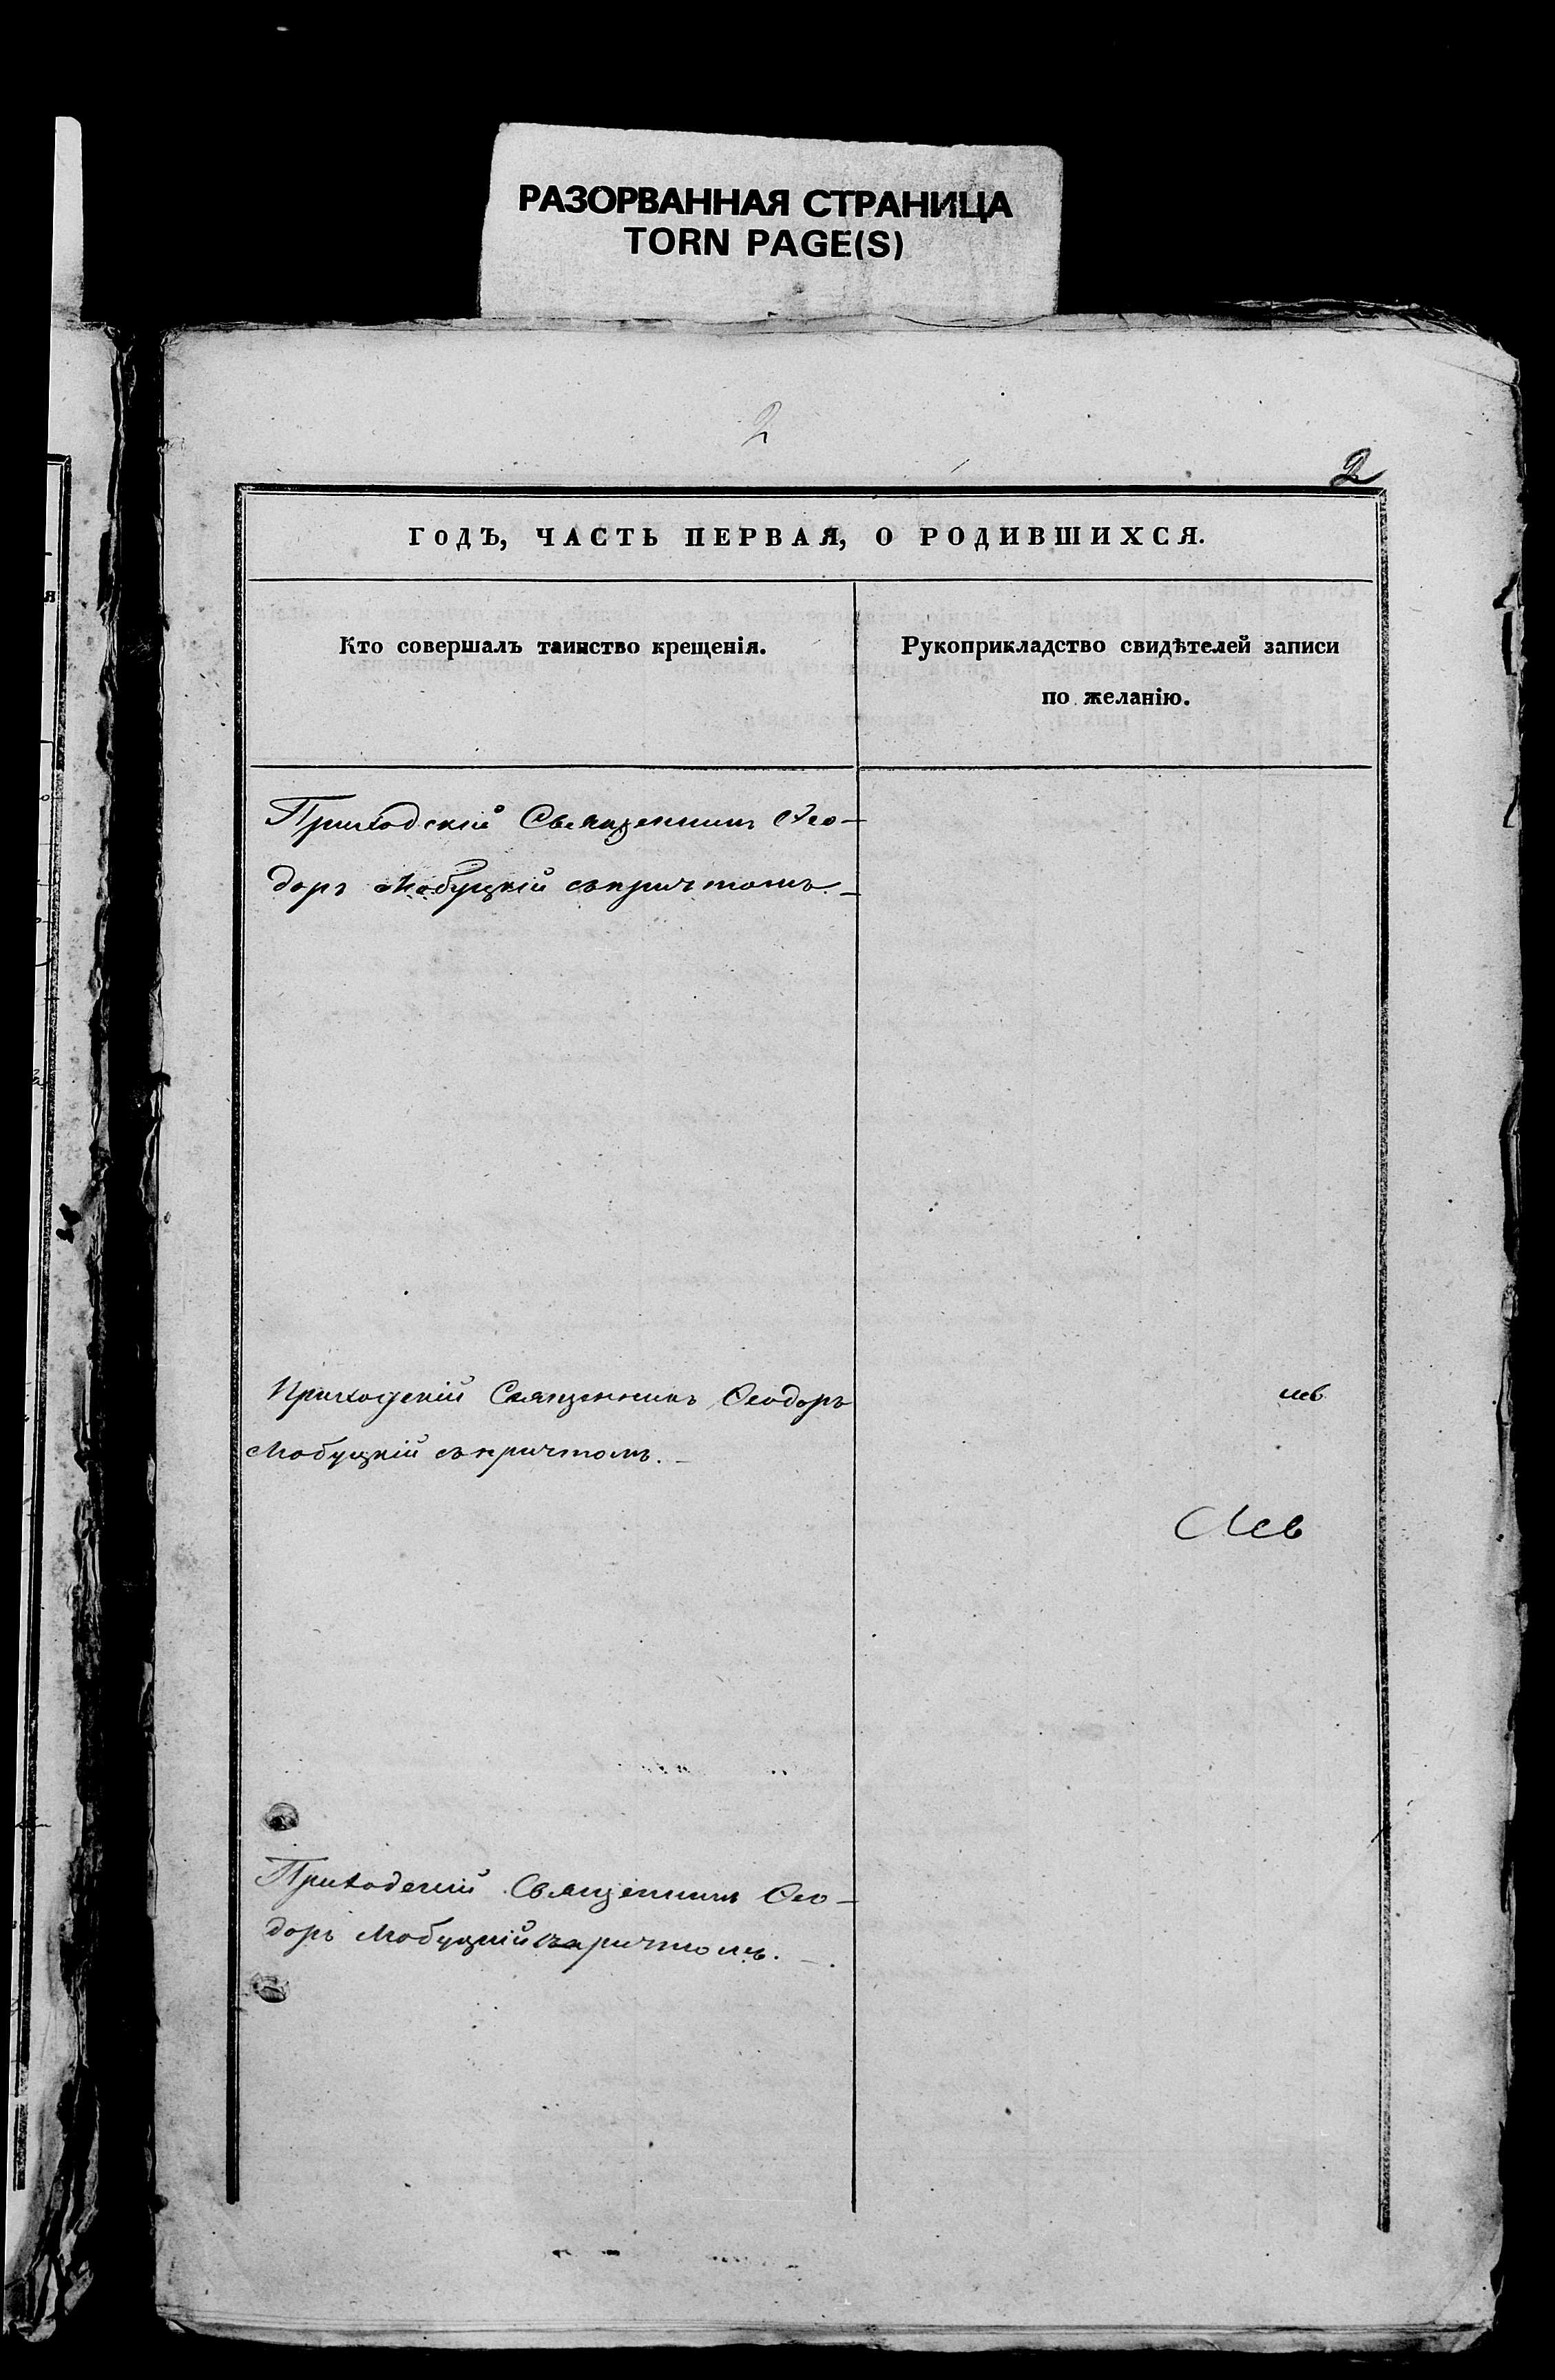 РАЗОРВАННАЯ СТРАНИЦА
TORN PAGE(S)
2
2
ГОДЪ, ЧАСТЬ ПЕРВАЯ, О РОДИВШИХСЯ.
Кто совершалъ таинство крещенія.
Рукоприкладство свидѣтелей записи
по желанію.
Приходскій Священникъ Ѳео-
доръ Мобуцкій съ причтомъ.
Приходскій Священникъ Ѳеодоръ
Мобуцкій съ причтомъ.
Приходскій Священникъ Ѳео-
доръ Мобуцкій съ причтомъ.